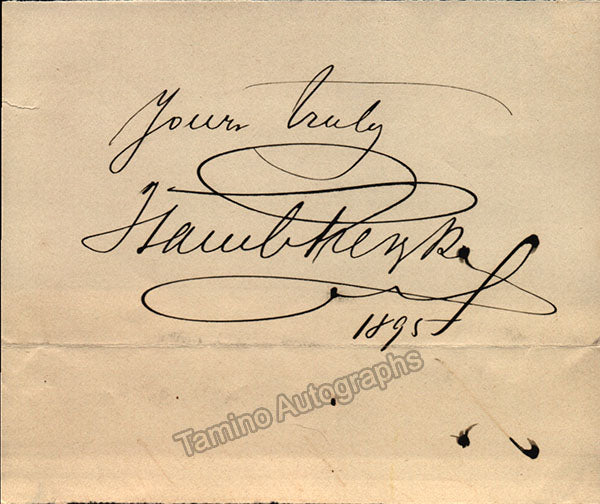 Yours truly
1895
Tamino Autographs